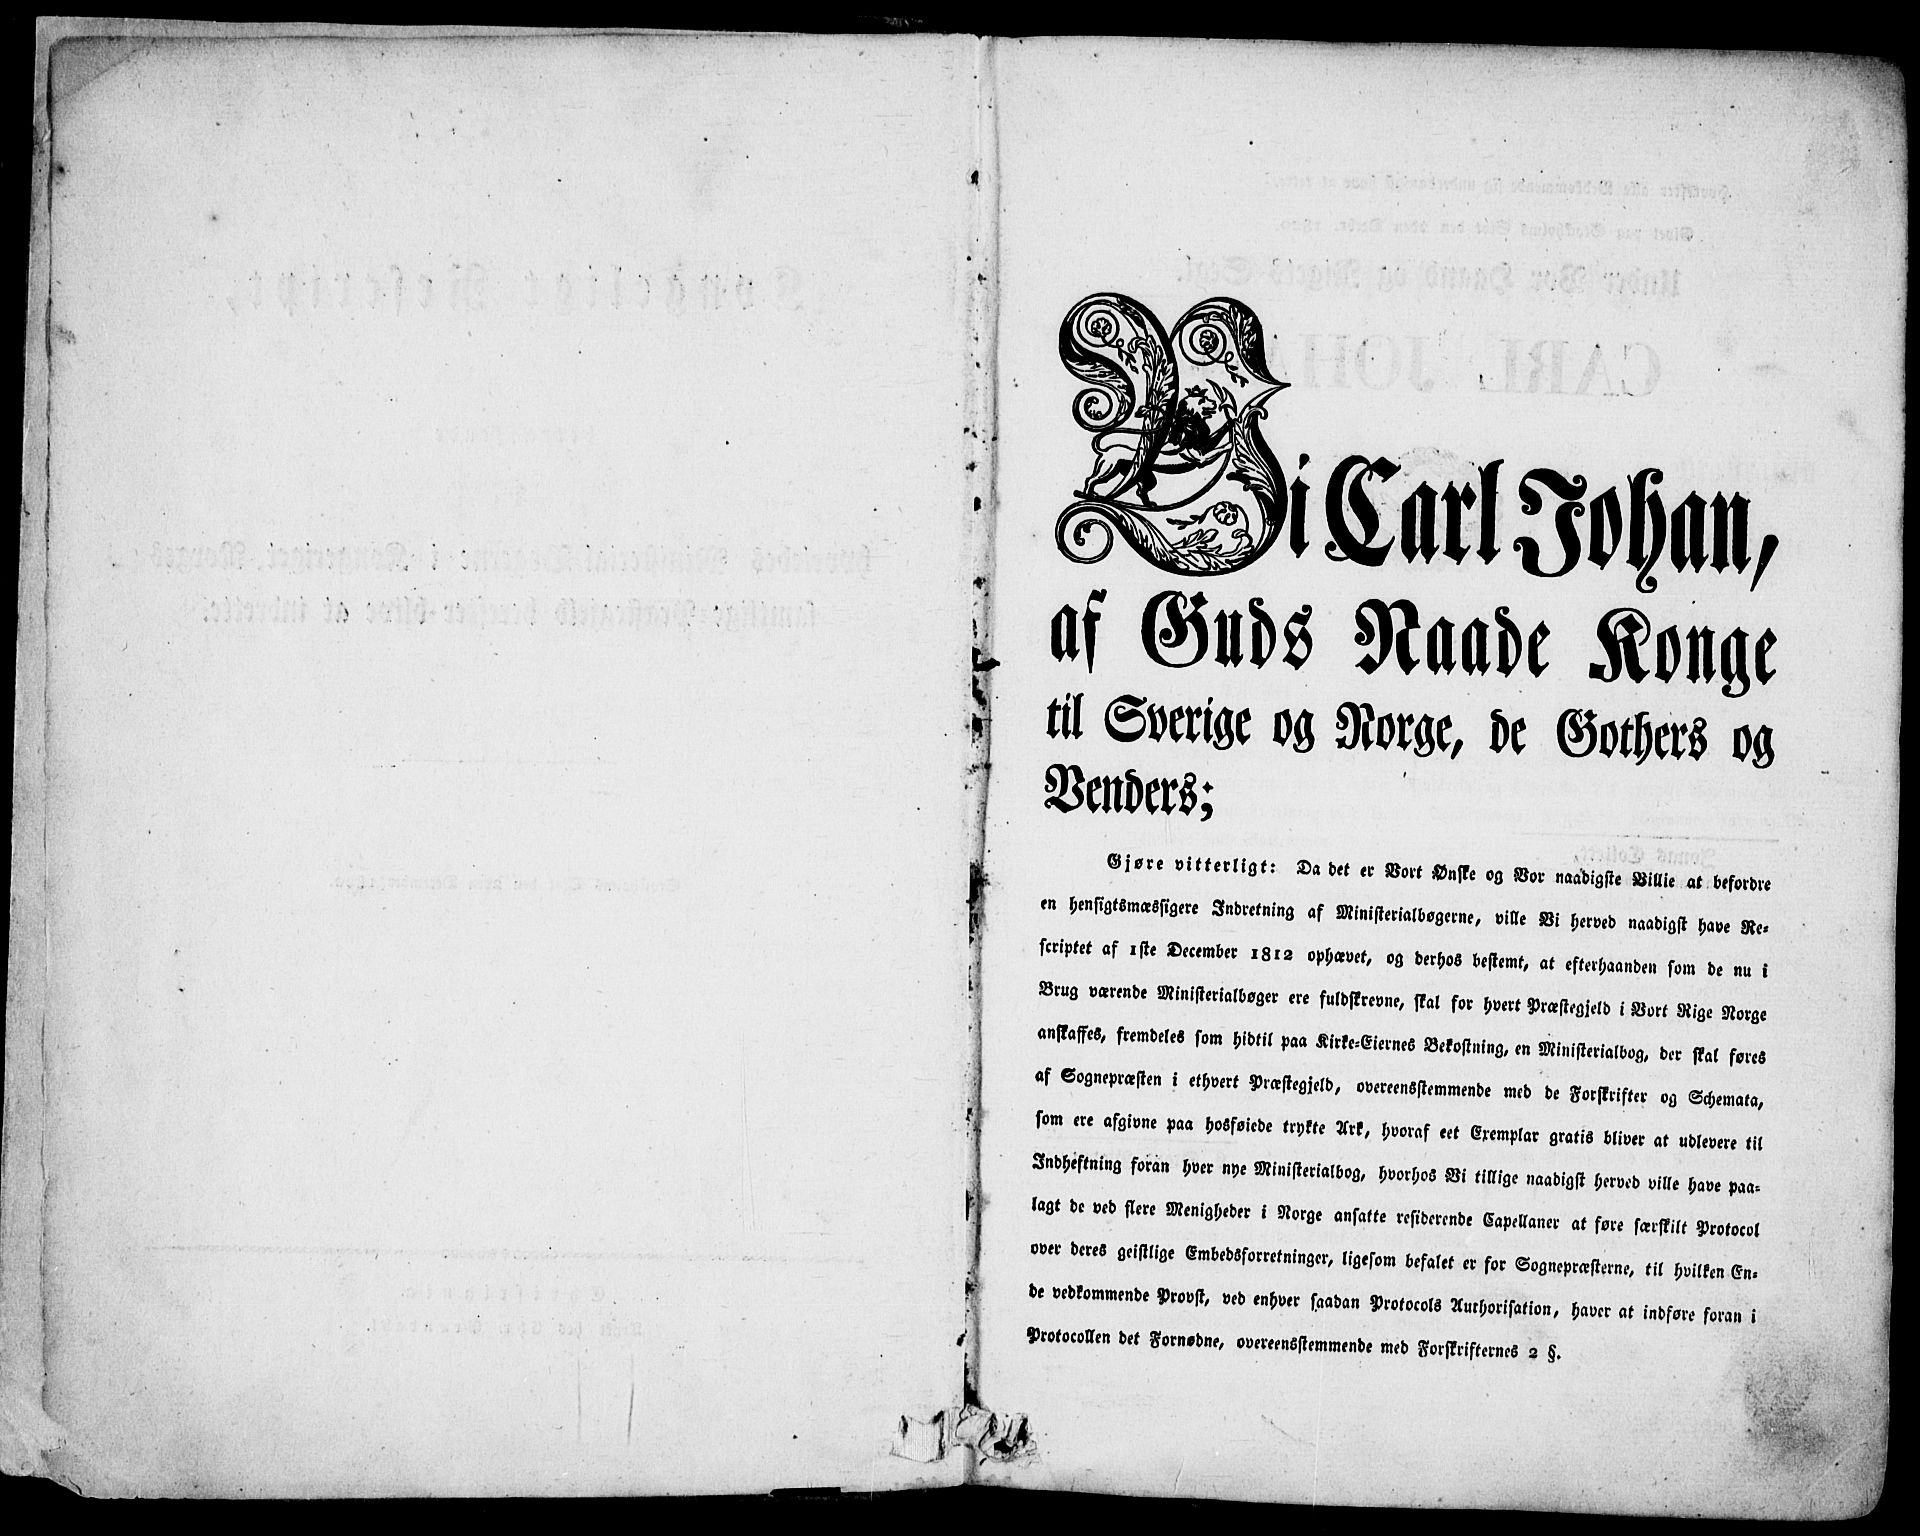 Vi Carl Johan,
af Guds Naade Konge
til Sverige og Norge, de Gothers og
Venders;
Gjøre vitterligt: Da det er Vort Ønske og Vor naadigste Villie at befordre
en hensigtsmæssigere Indretning af Ministerialbøgerne, ville Vi herved naadigst have Re=
scriptet af 1ste December 1812 ophævet, og derhos bestemt, at efterhaanden som de nu i
Brug værende Ministerialbøger ere fuldskrevne, skal for hvert Præstegjeld i Vort Rige Norge
anskaffes, fremdeles som hidtil paa Kirke=Eiernes Bekostning, en Ministerialbog, der skal føres
af Sognepræsten i ethvert Præstegjeld, overeensstemmende med de Forskrifter og Schemata,
som ere afgivne paa hosføiede trykte Ark, hvoraf eet Exemplar gratis bliver at udlevere til
Indheftning foran hver nye Ministerialbog, hvorhos Vi tillige naadigst herved ville have paa=
lagt de ved flere Menigheder i Norge ansatte residerende Capellaner at føre særskilt Protocol
over deres geistlige Embedsforretninger, ligesom befalet er for Sognepræsterne, til hvilken En=
de vedkommende Provst, ved enhver saadan Protocols Authorisation, haver at indføre foran i
Protocollen det Fornødne, overeensstemmende med Forskrifternes 2 §.